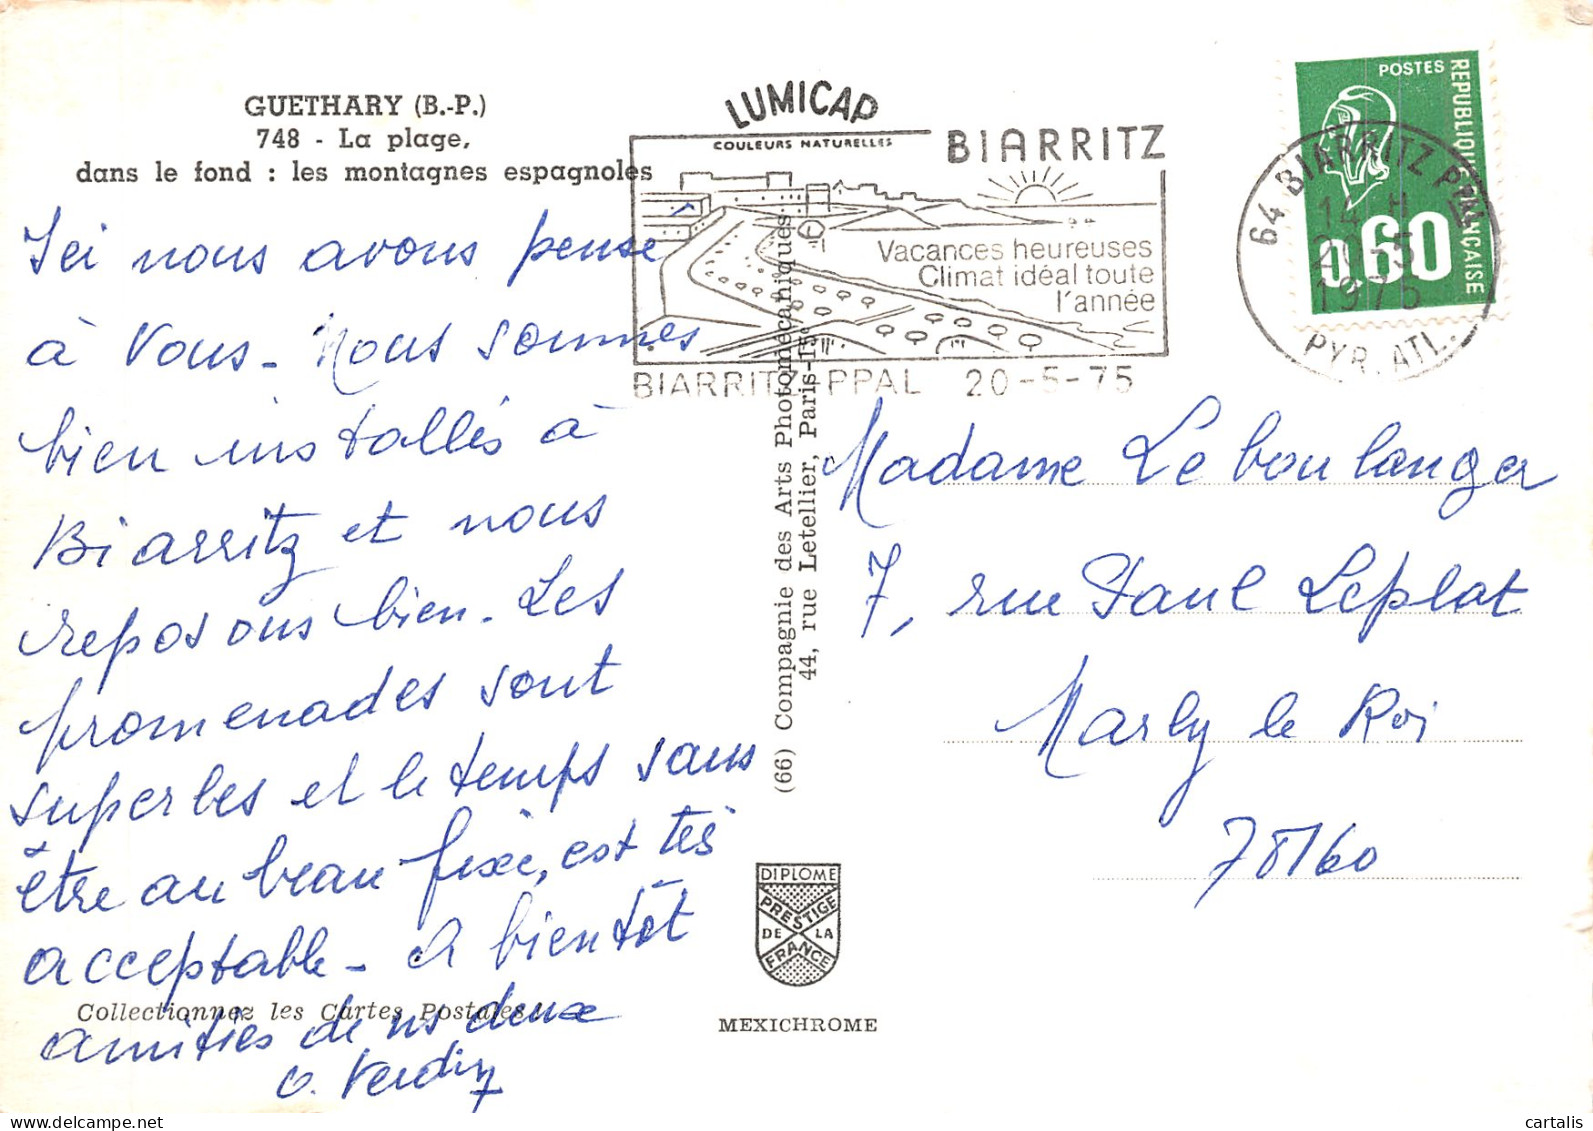 GUETHARY (B.-P.)
748 - La plage,
dans le fond : les montagnes espagnoles
Ici nous avons pensé
à Vous - Nous sommes
bien installés à
Biarritz et nous
reposons bien. Les
promenades sont
superbes et le temps sans
être au beau fixe, est très
acceptable - A bientôt
amitiés de ns deux
Collectionnez les Cartes Postales
LUMICAP
COULEURS NATURELLES
BIARRITZ
Vacances heureuses
Climat idéal toute
l'année
BIARRITZ PPAL 20-5-75
POSTES
REPUBLIQUE FRANÇAISE
0,60
64 BIARRITZ PPAL
14 H
20-5
1975
PYR. ATL.
(66) Compagnie des Arts Photomécaniques
44, rue Letellier, Paris-15e
Madame Leboulanger
7, rue Paul Leplat
Marly le Roi
78160
DIPLOME
PRESTIGE
DE LA
FRANCE
MEXICHROME
cartalis